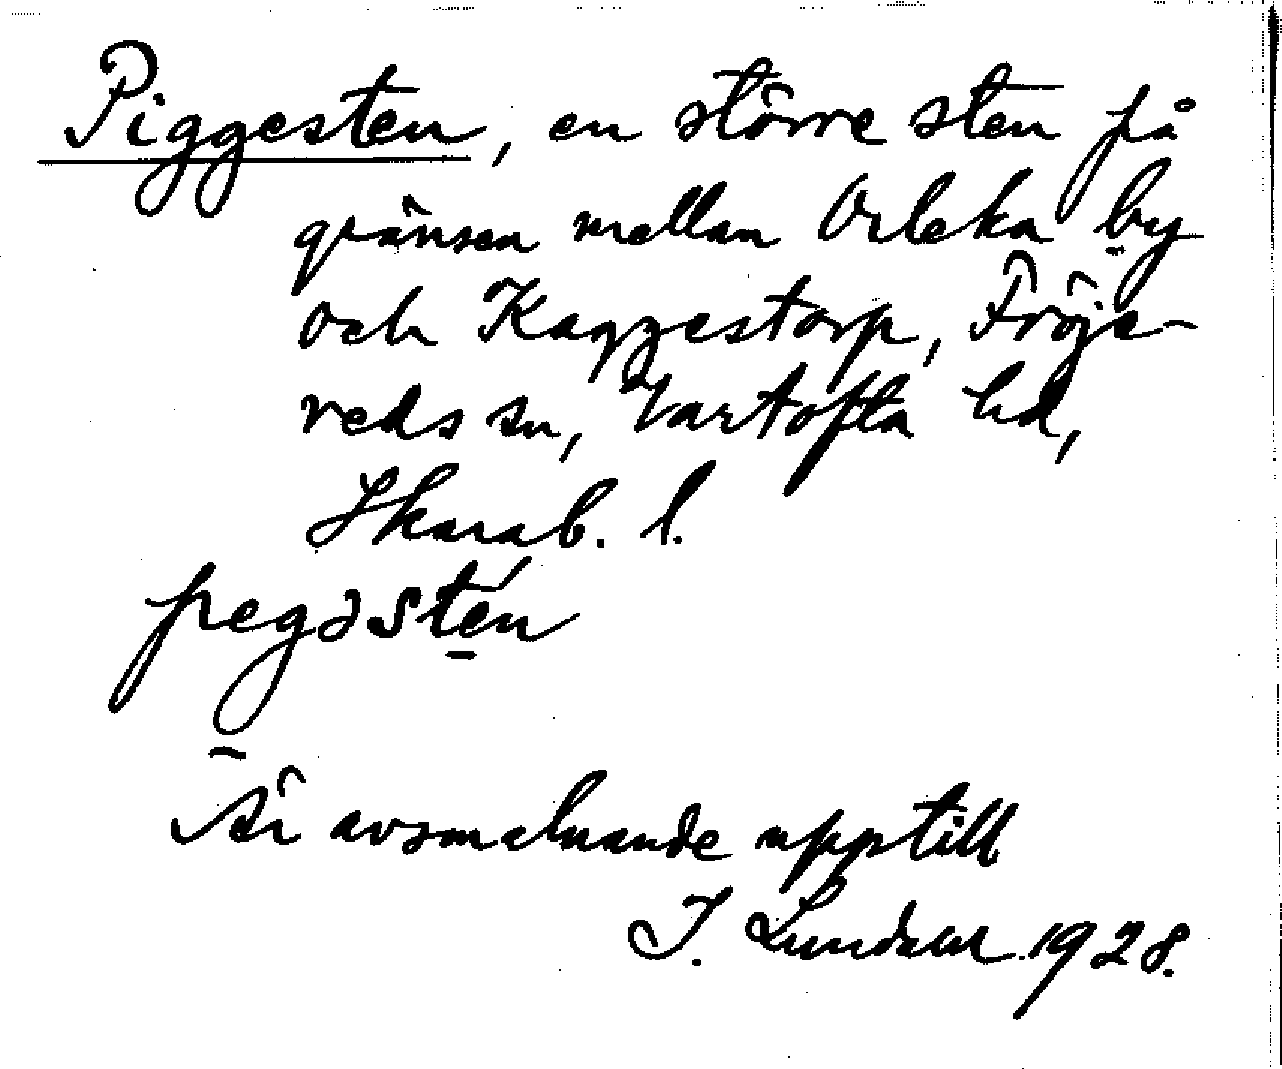 Piggesten, en större sten på
gränsen mellan Orleka by
och Kaggestorp, Fröje-
reds sn, Vartofta hd,
Skarab. l.
pegəstén
Är avsmalnande upptill
I. Lundahl 1928.